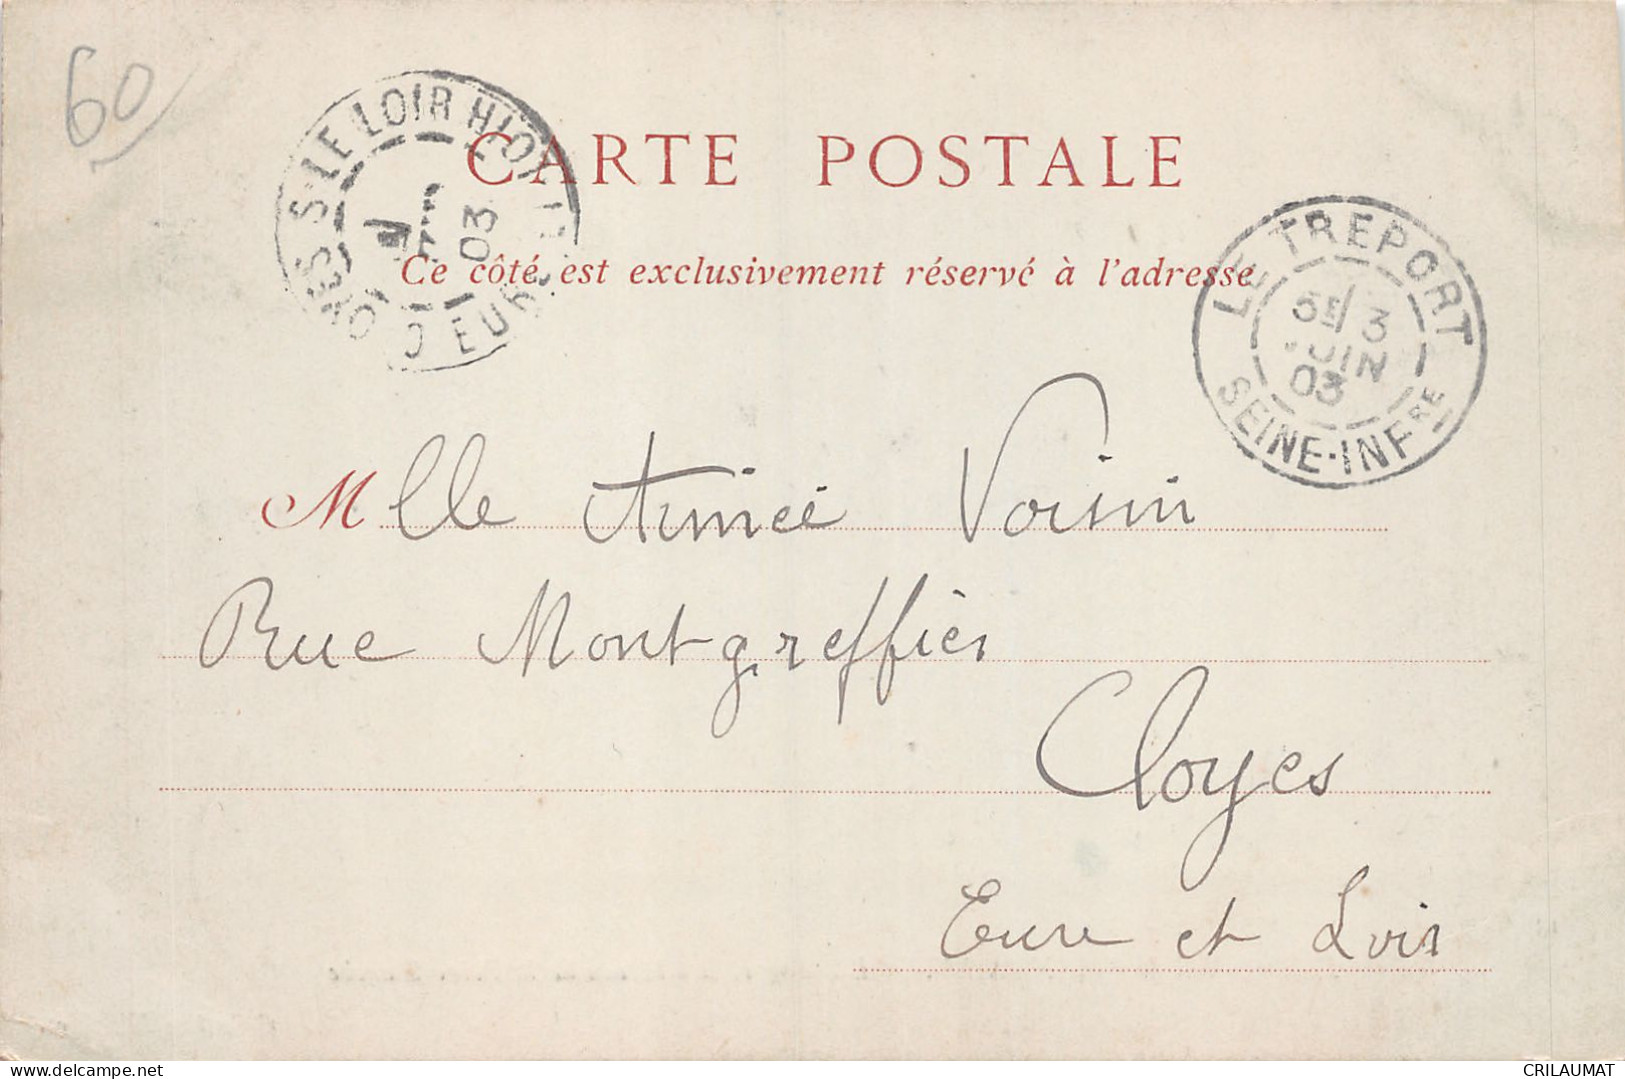 60
CLOYES-S-LE-LOIR
03
CARTE POSTALE
Ce côté est exclusivement réservé à l'adresse
LE TREPORT
5E/ 3
JUIN
03
SEINE-INFRE
Mlle Aimée Voisin
Rue Montgreffier
Cloyes
Eure et Loir
CRILAUMAT